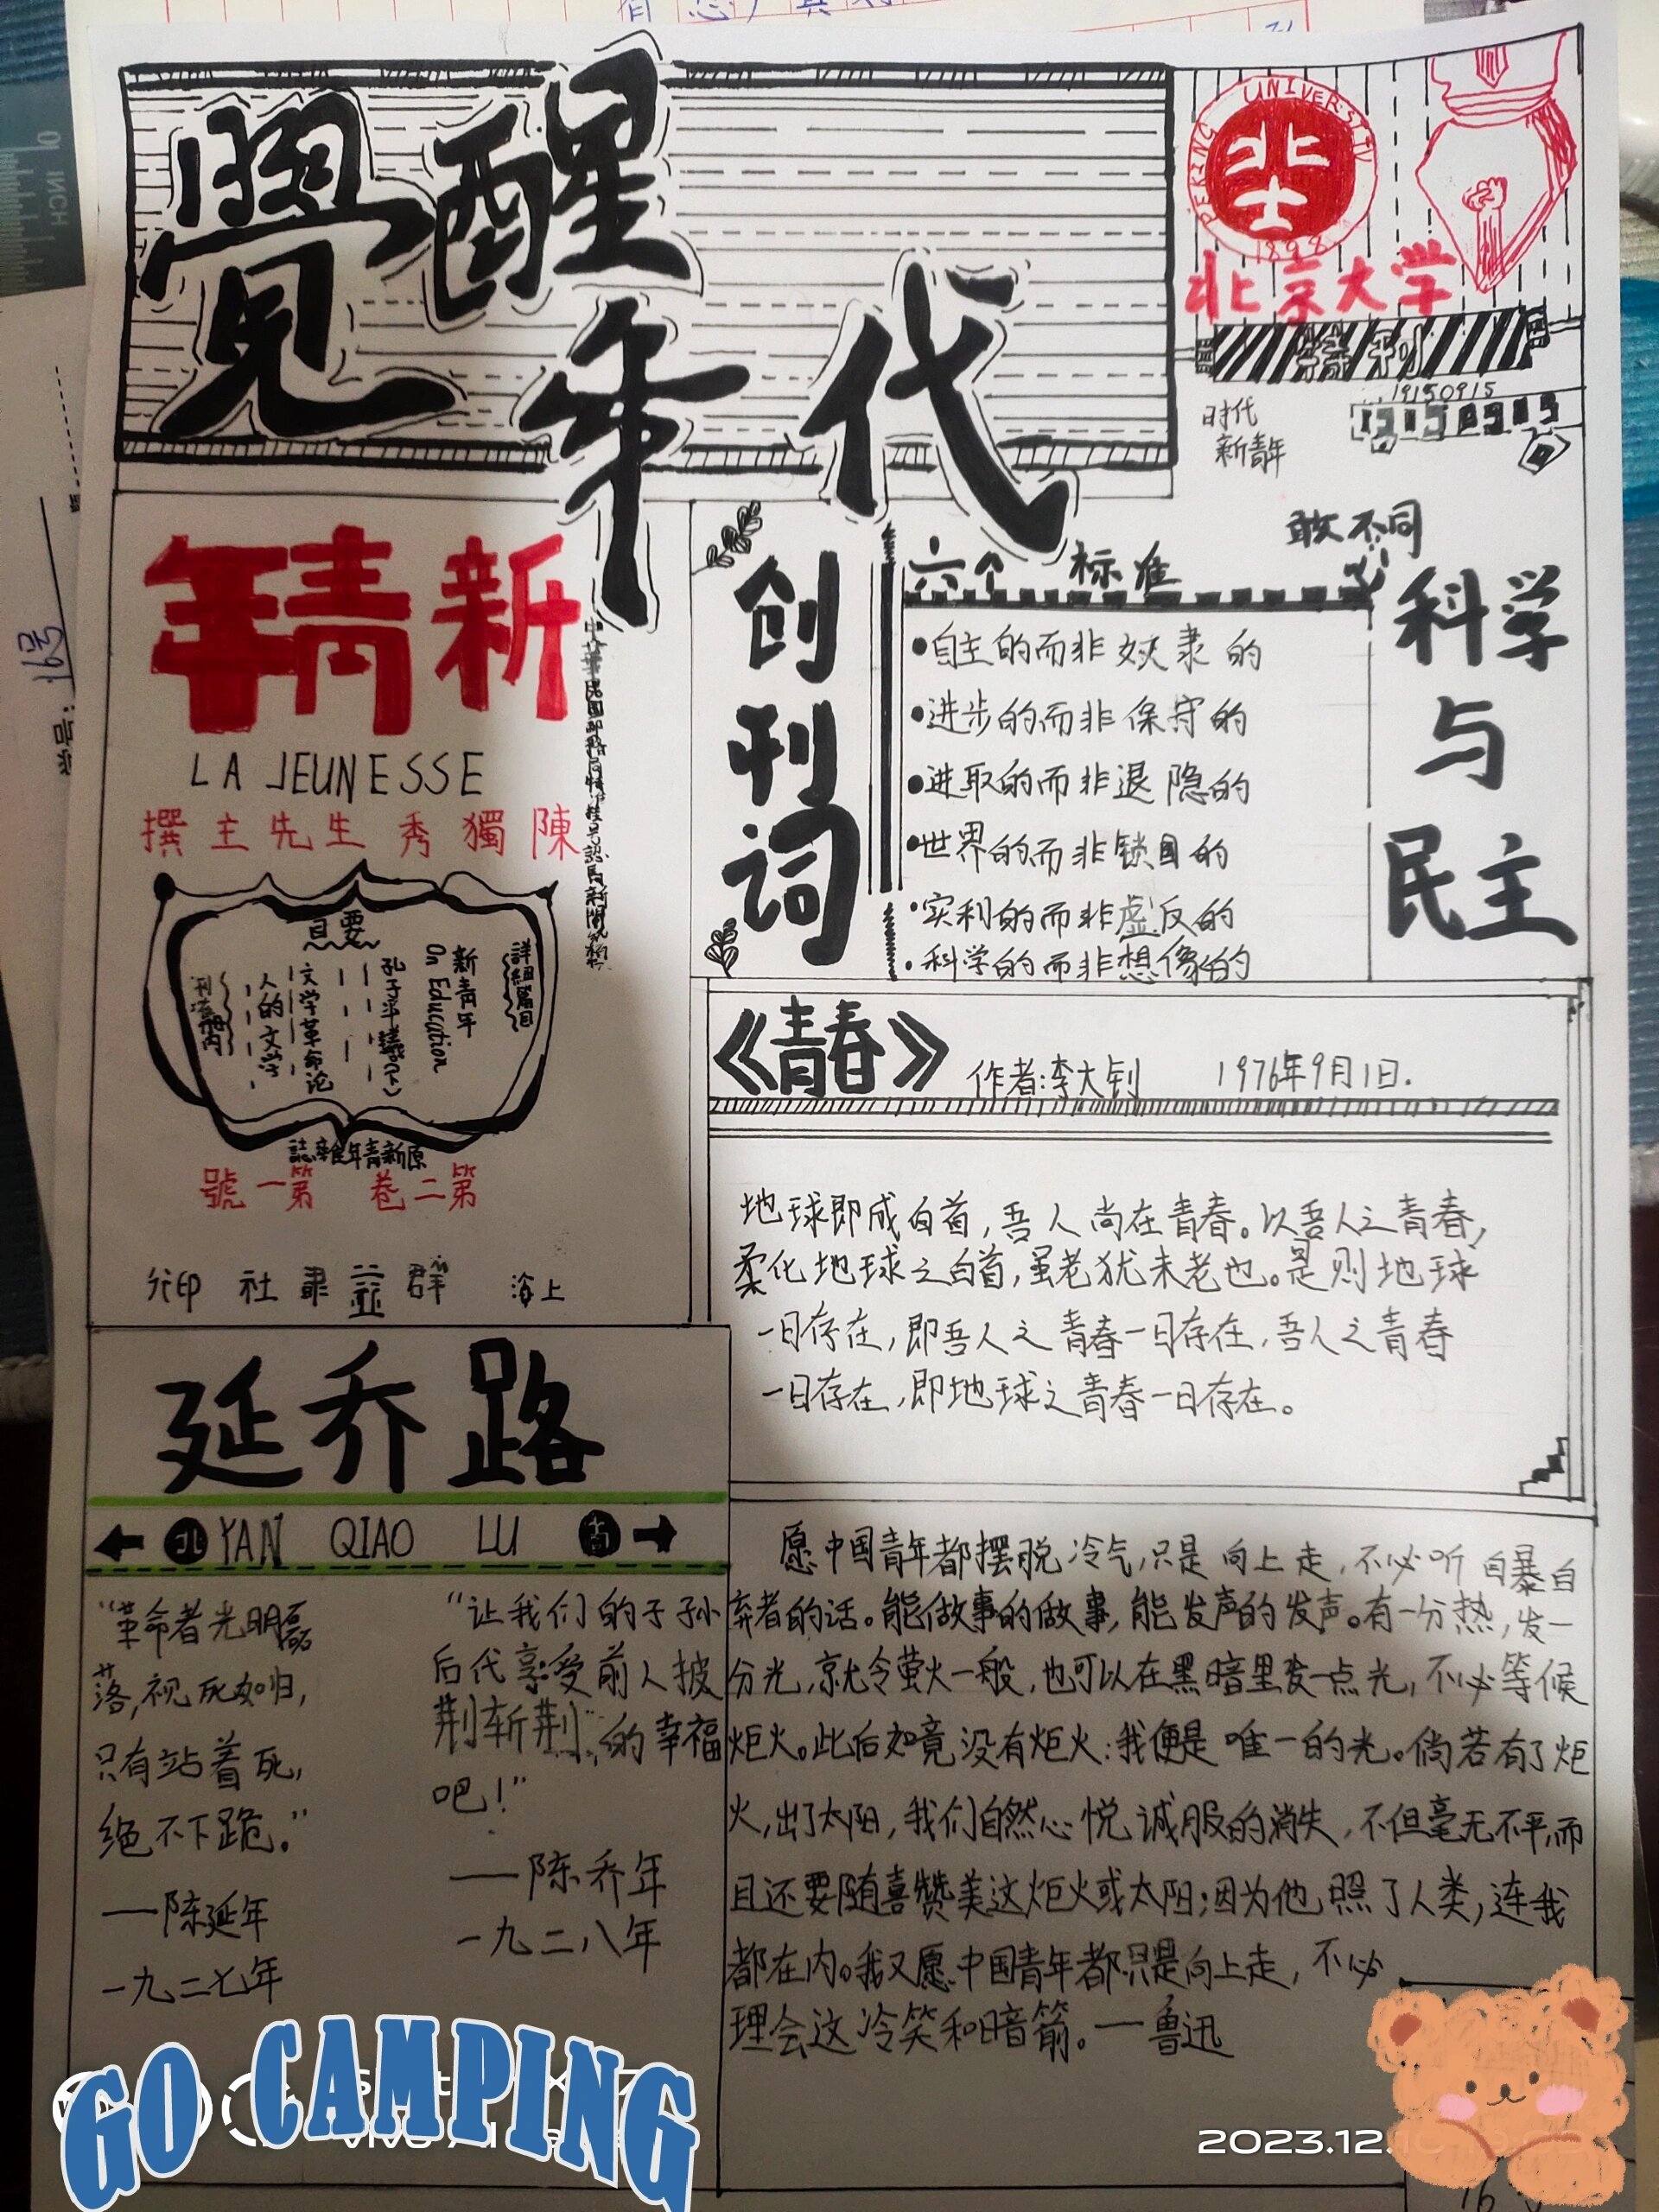 覺醒
年代
PEKING UNIVERSITY
1898
北京大学
特刊
19150915
时代
新青年
新青年
LA JEUNESSE
陳獨秀先生主撰
要目
詳細篇目
新青年
On Education
孔子平議(下)
文学革命论
人的文学
刊在册内
原新青年雜誌
第二卷 第一號
上海 群益書社 印行
创刊词
六个标准
•自主的而非奴隶的
•进步的而非保守的
•进取的而非退隐的
•世界的而非锁国的
•实利的而非虚反的
•科学的而非想像的
敢不同
科学
与
民主
《青春》 作者:李大钊 1976年9月1日.
地球即成白首,吾人尚在青春。以吾人之青春,
柔化地球之白首,虽老犹未老也。是则地球
一日存在,即吾人之青春一日存在,吾人之青春
一日存在,即地球之青春一日存在。
延乔路
北 YAN QIAO LU 南
“革命者光明磊
落,视死如归,
只有站着死,
绝不下跪。”
——陈延年
一九二七年
“让我们的子孙
后代享受前人披
荆斩荆的幸福
吧!”
——陈乔年
一九二八年
愿中国青年都摆脱冷气,只是向上走,不必听自暴自
弃者的话。能做事的做事,能发声的发声。有一分热,发一
分光,就令萤火一般,也可以在黑暗里发一点光,不必等候
炬火。此后如竟没有炬火:我便是唯一的光。倘若有了炬
火,出了太阳,我们自然心悦诚服的消失,不但毫无不平,而
且还要随喜赞美这炬火或太阳;因为他照了人类,连我
都在内。我又愿中国青年都只是向上走,不必
理会这冷笑和暗箭。—鲁迅
GO CAMPING
2023.12
16号
INCH